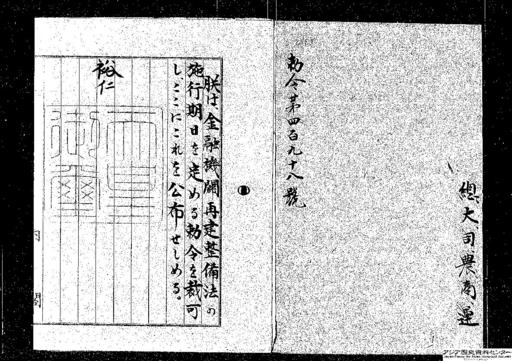 總大司農商運
勅令第四百九十八號
朕は、金融機關再建整備法の
施行期日を定める勅令を裁可
し、ここにこれを公布せしめる。
裕仁
天皇御璽
閣
アジア歴史資料センター